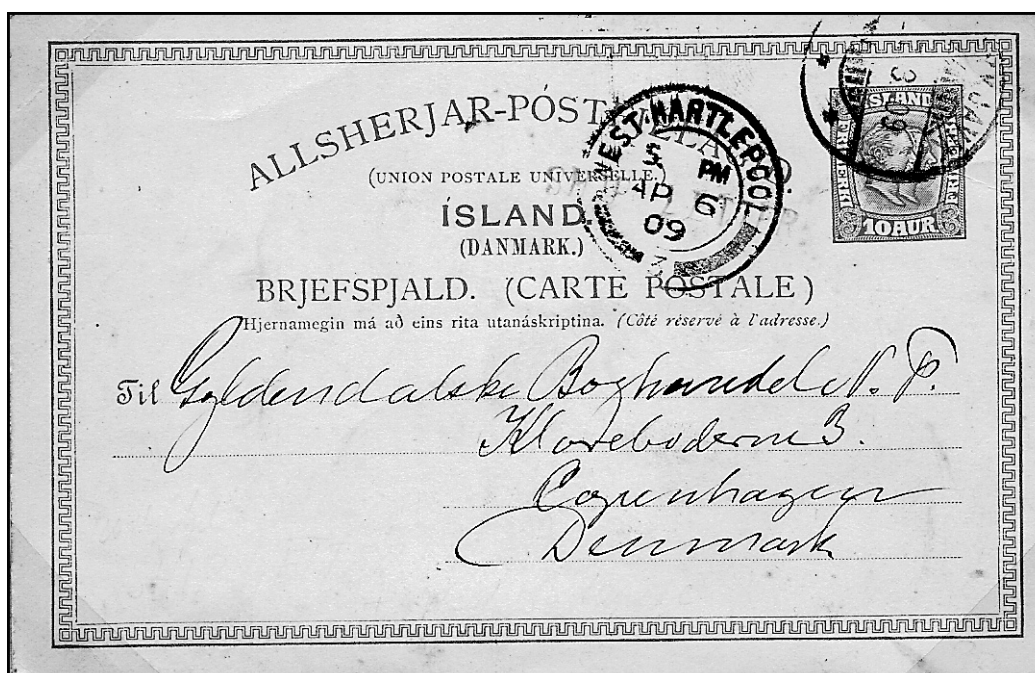 ALLSHERJAR-PÓSTFJELAG.
(UNION POSTALE UNIVERSELLE.)
ÍSLAND.
(DANMARK.)
BRJEFSPJALD. (CARTE POSTALE)
Hjernamegin má að eins rita utanáskriptina. (Côté réservé à l'adresse.)
WEST HARTLEPOOL
5 PM
AP 6
09
3
ÍSLAND
10 AUR
Til Gyldendalske Boghandel N. F.
Klareboderne 3.
Copenhagen
Denmark